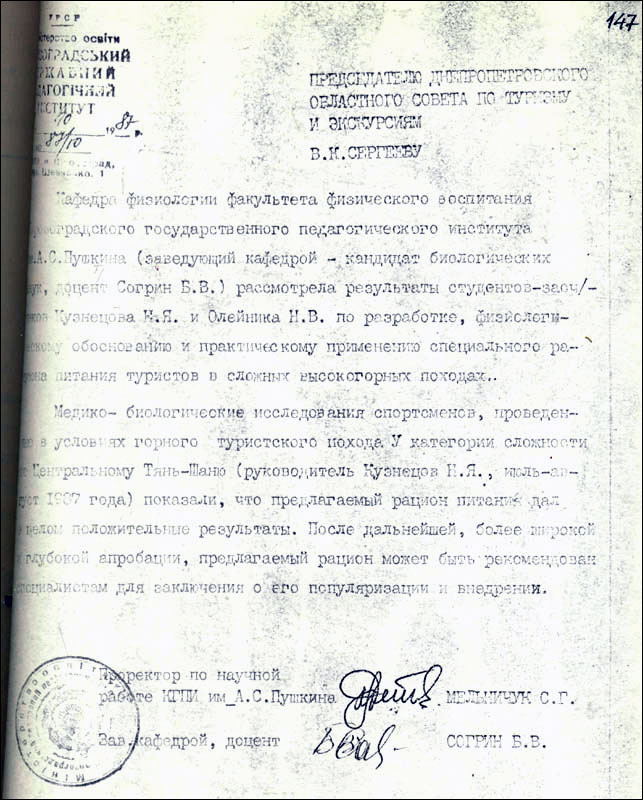 147
УРСР
Міністерство освіти
КІРОВОГРАДСЬКИЙ
ДЕРЖАВНИЙ
ПЕДАГОГІЧНИЙ
ІНСТИТУТ
10 1987 р.
87/10
Шевченко, 1
ПРЕДСЕДАТЕЛЮ ДНЕПРОПЕТРОВСКОГО
ОБЛАСТНОГО СОВЕТА ПО ТУРИЗМУ
И ЭКСКУРСИЯМ
В.К.СЕРГЕЕВУ
Кафедра физиологии факультета физического воспитания
Кировоградского государственного педагогического института
им.А.С.Пушкина (заведующий кафедрой - кандидат биологических
наук, доцент Согрин Б.В.) рассмотрела результаты студентов-заоч/-
ников Кузнецова Н.Я. и Олейника Н.В. по разработке, физиологи-
ческому обоснованию и практическому применению специального ра-
циона питания туристов в сложных высокогорных походах..
Медико- биологические исследования спортсменов, проведен-
ые в условиях горного туристского похода У категории сложности
по Центральному Тянь-Шаню (руководитель Кузнецов Н.Я., июль-ав-
густ 1987 года) показали, что предлагаемый рацион питания дал
в целом положительные результаты. После дальнейшей, более широкой
и глубокой апробации, предлагаемый рацион может быть рекомендован
специалистам для заключения о его популяризации и внедрении.
Проректор по научной
работе КГПИ им_А.С.Пушкина МЕЛЬНИЧУК С.Г.
Зав.кафедрой, доцент СОГРИН Б.В.